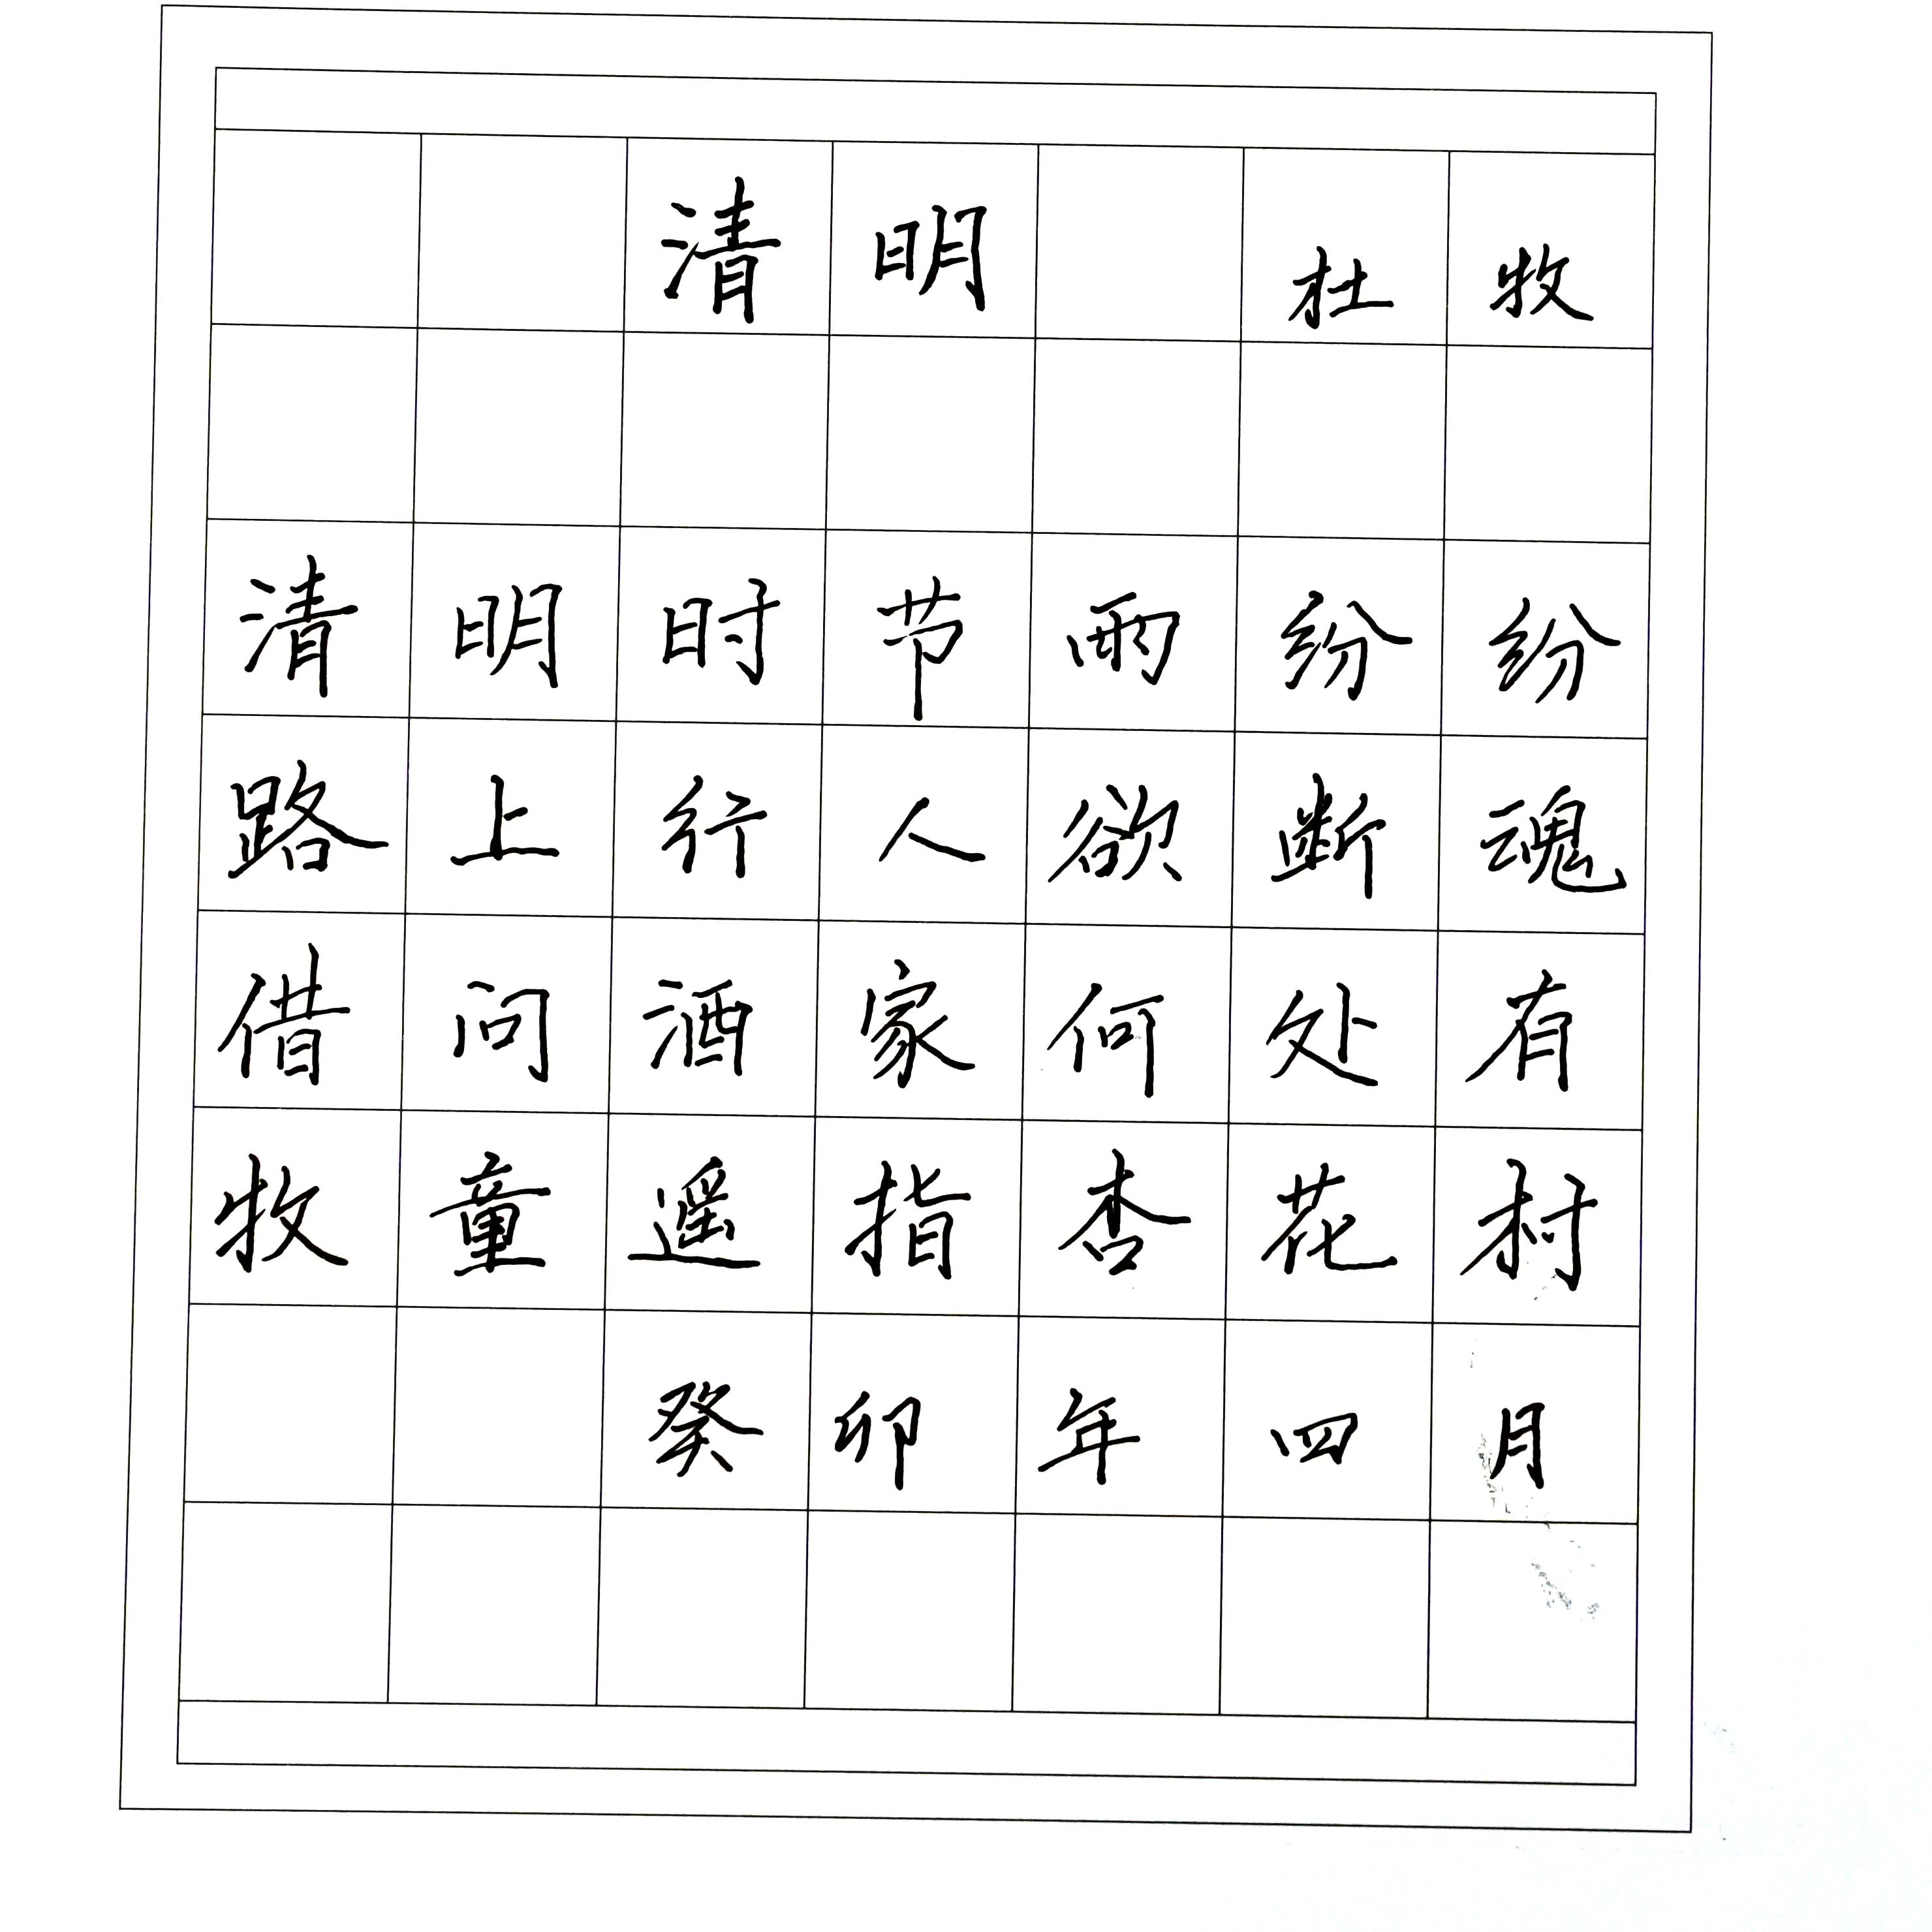 清明 杜牧
清明时节雨纷纷
路上行人欲断魂
借问酒家何处有
牧童遥指杏花村
癸卯年四月